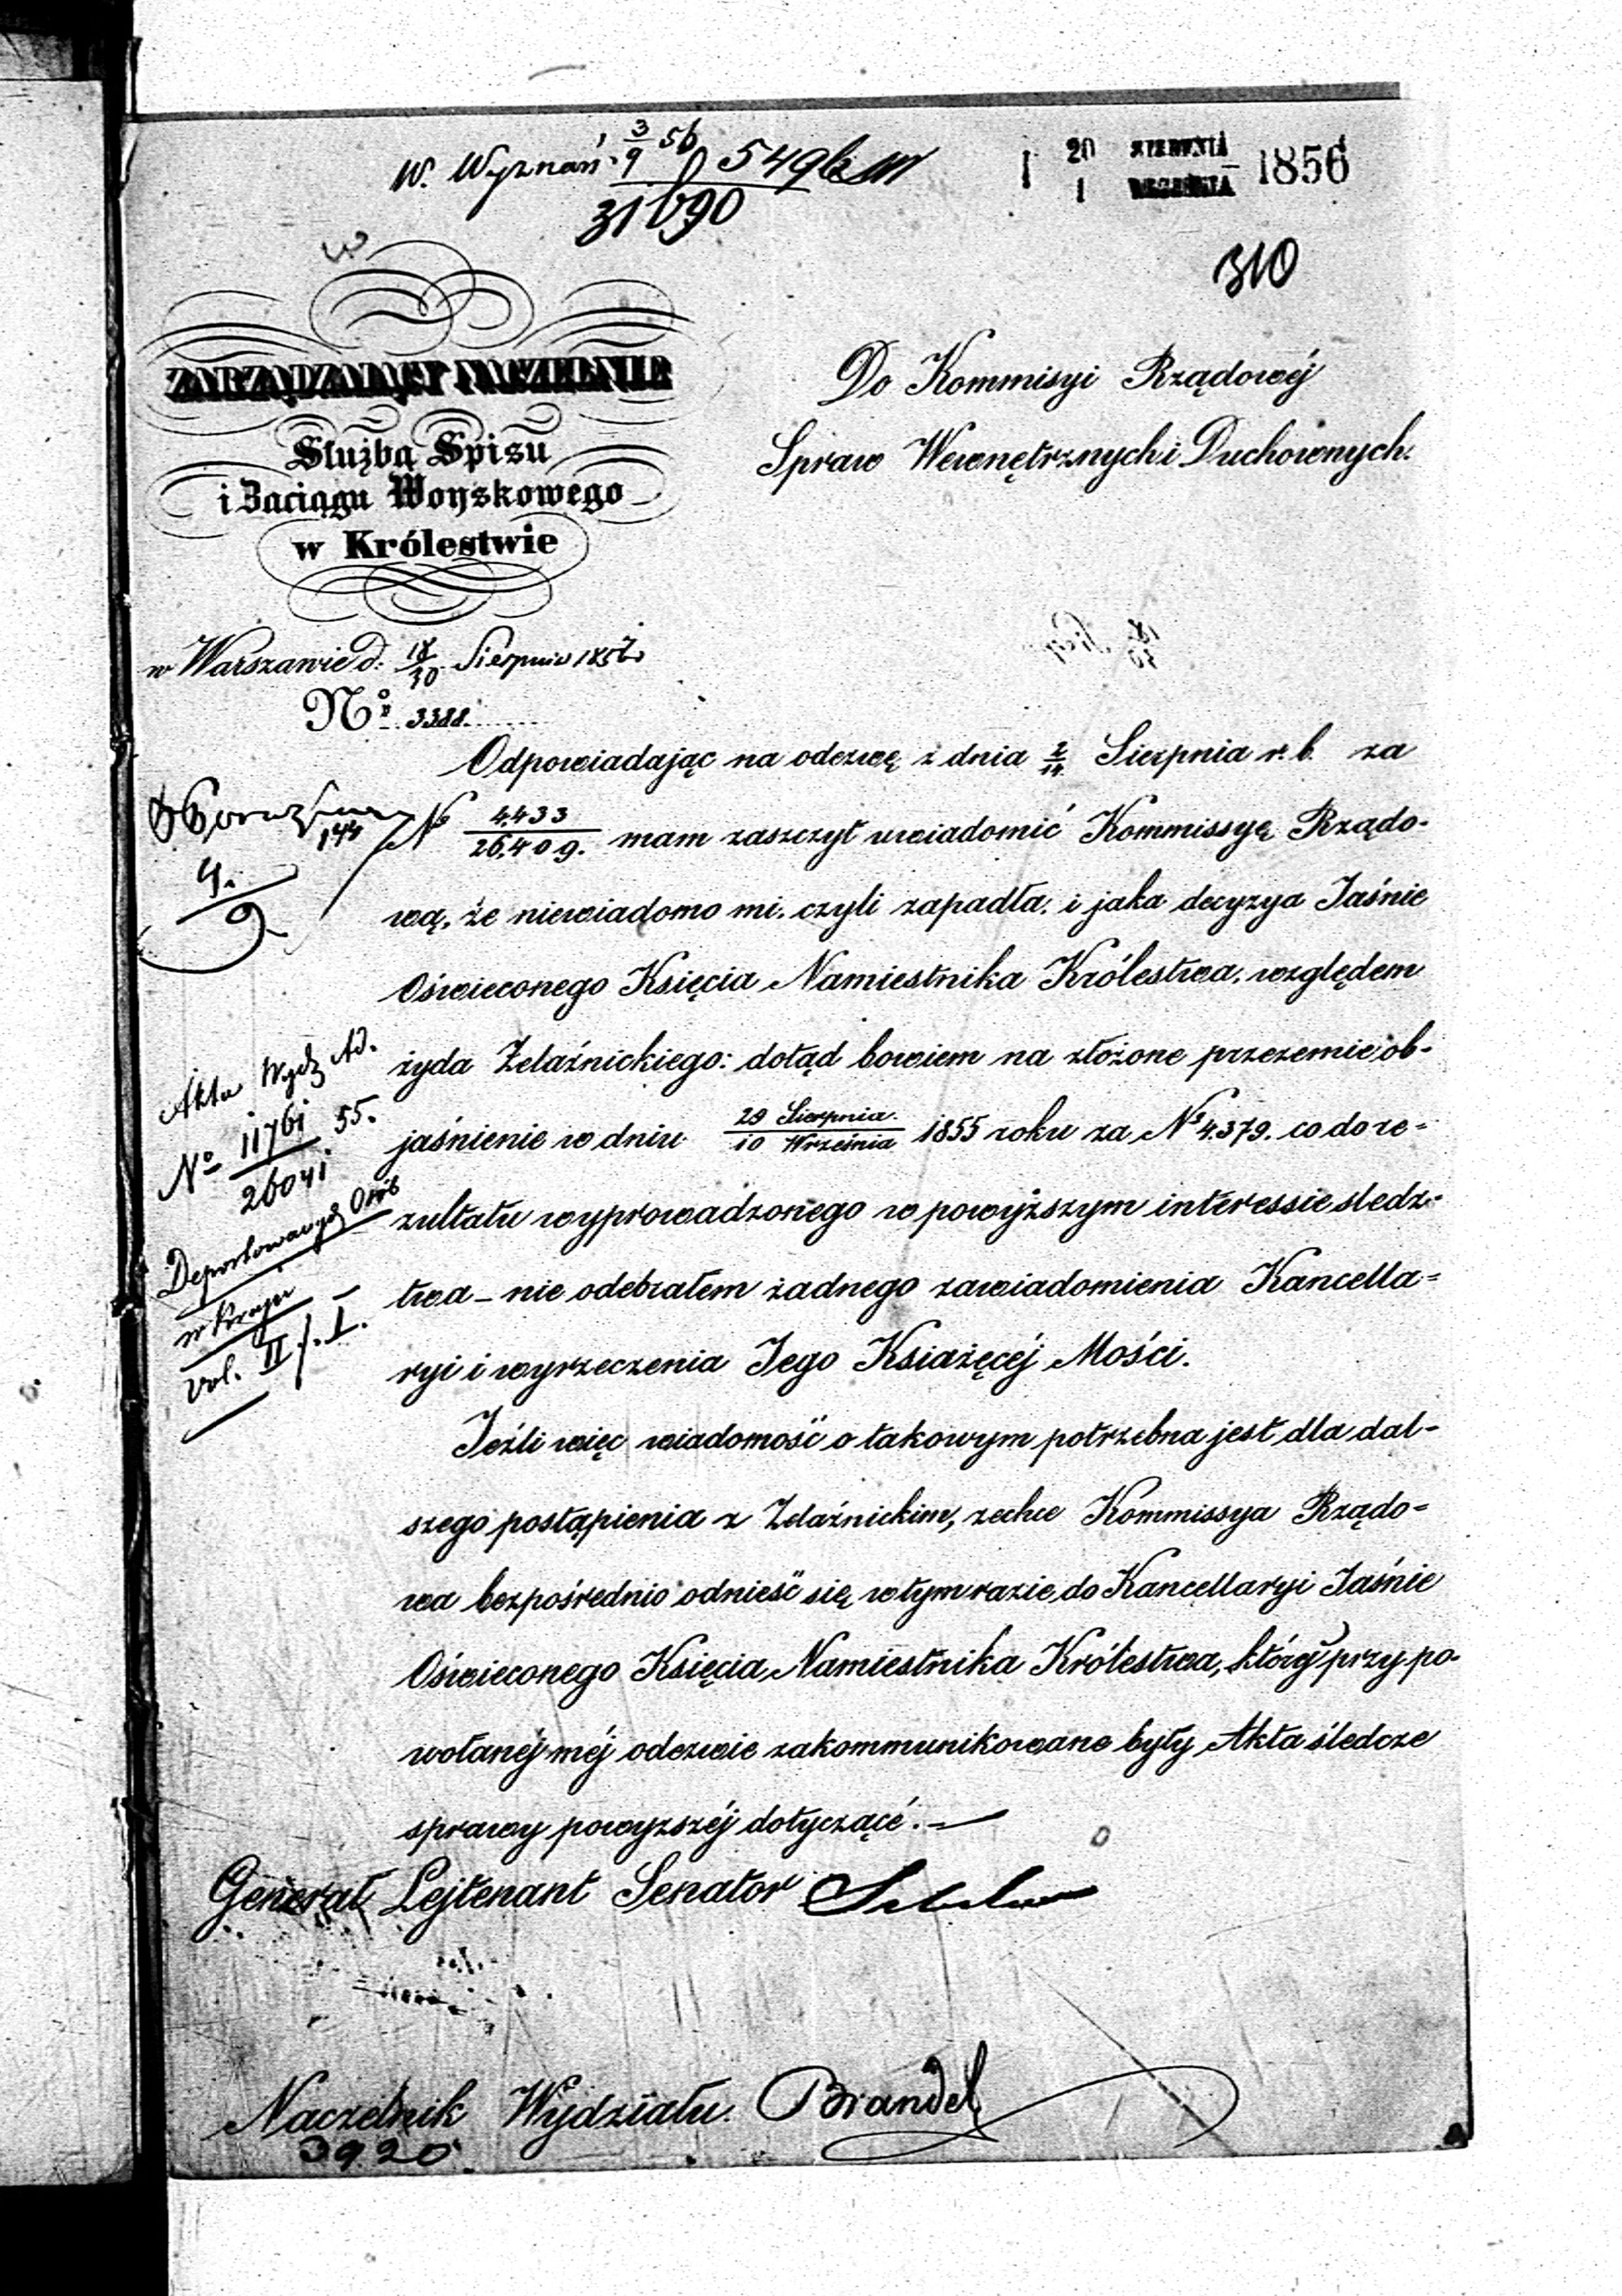 W. Wyznań 3/9 56 5496
31690
20 SIERPNIA
1 WRZEŚNIA 1856
310
ZARZĄDZAIĄCY NACZELNIE
Służbą Spisu
i Zaciągu Woyskowego
w Królestwie
w Warszawie d. 18/30 Sierpnia 1856
No 3388.
Do Kommisyi Rządowéj
Spraw Wewnętrznych i Duchownych.
Odpowiadając na odezwę z dnia 2/14 Sierpnia r. b. za
No 4433/26,409. mam zaszczyt uwiadomić Kommissyę Rządo-
wą, że niewiadomo mi, czyli zapadła, i jaka decyzya Jaśnie
Oświeconego Księcia Namiestnika Królestwa, względem
żyda Żelaźnickiego: dotąd bowiem na złożone przezemie ob-
jaśnienie w dniu 29 Sierpnia/10 Września 1855 roku za No 4,379. co do re-
zultatu wyprowadzonego w powyższym interessie sledz-
twa – nie odebrałem żadnego zawiadomienia Kancella-
ryi i wyrzeczenia Jego Książęcéj Mości.
Jeźli więc wiadomość o takowym potrzebna jest dla dal-
szego postąpienia z Żelaźnickim, zechce Kommissya Rządo-
wa bezpośrednio odnieść się w tym razie do Kancellaryi Jaśnie
Oświeconego Księcia Namiestnika Królestwa, któréj przy po-
wołanéj méj odezwie zakommunikowane były Akta śledcze
sprawy powyzszéj dotyczącé. —
Generał Lejtenant Senator
Naczelnik Wydziału. Brandel
3920.
144
4/9
Akta Wydz. Ad.
No 11761/26041 55.
Deportowanych Osób
w kraju
vol. II f. I.